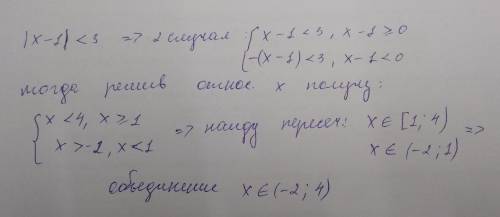 |x-1|<3 => 2 случая: { x-1<3, x-1≥0
-(x-1)<3, x-1<0
тогда решив относ. x получу:
{ x<4, x≥1
x>-2, x<1 => найду пересеч: x∈[1;4) =>
x∈(-2;1)
объединение x∈(-2;4)